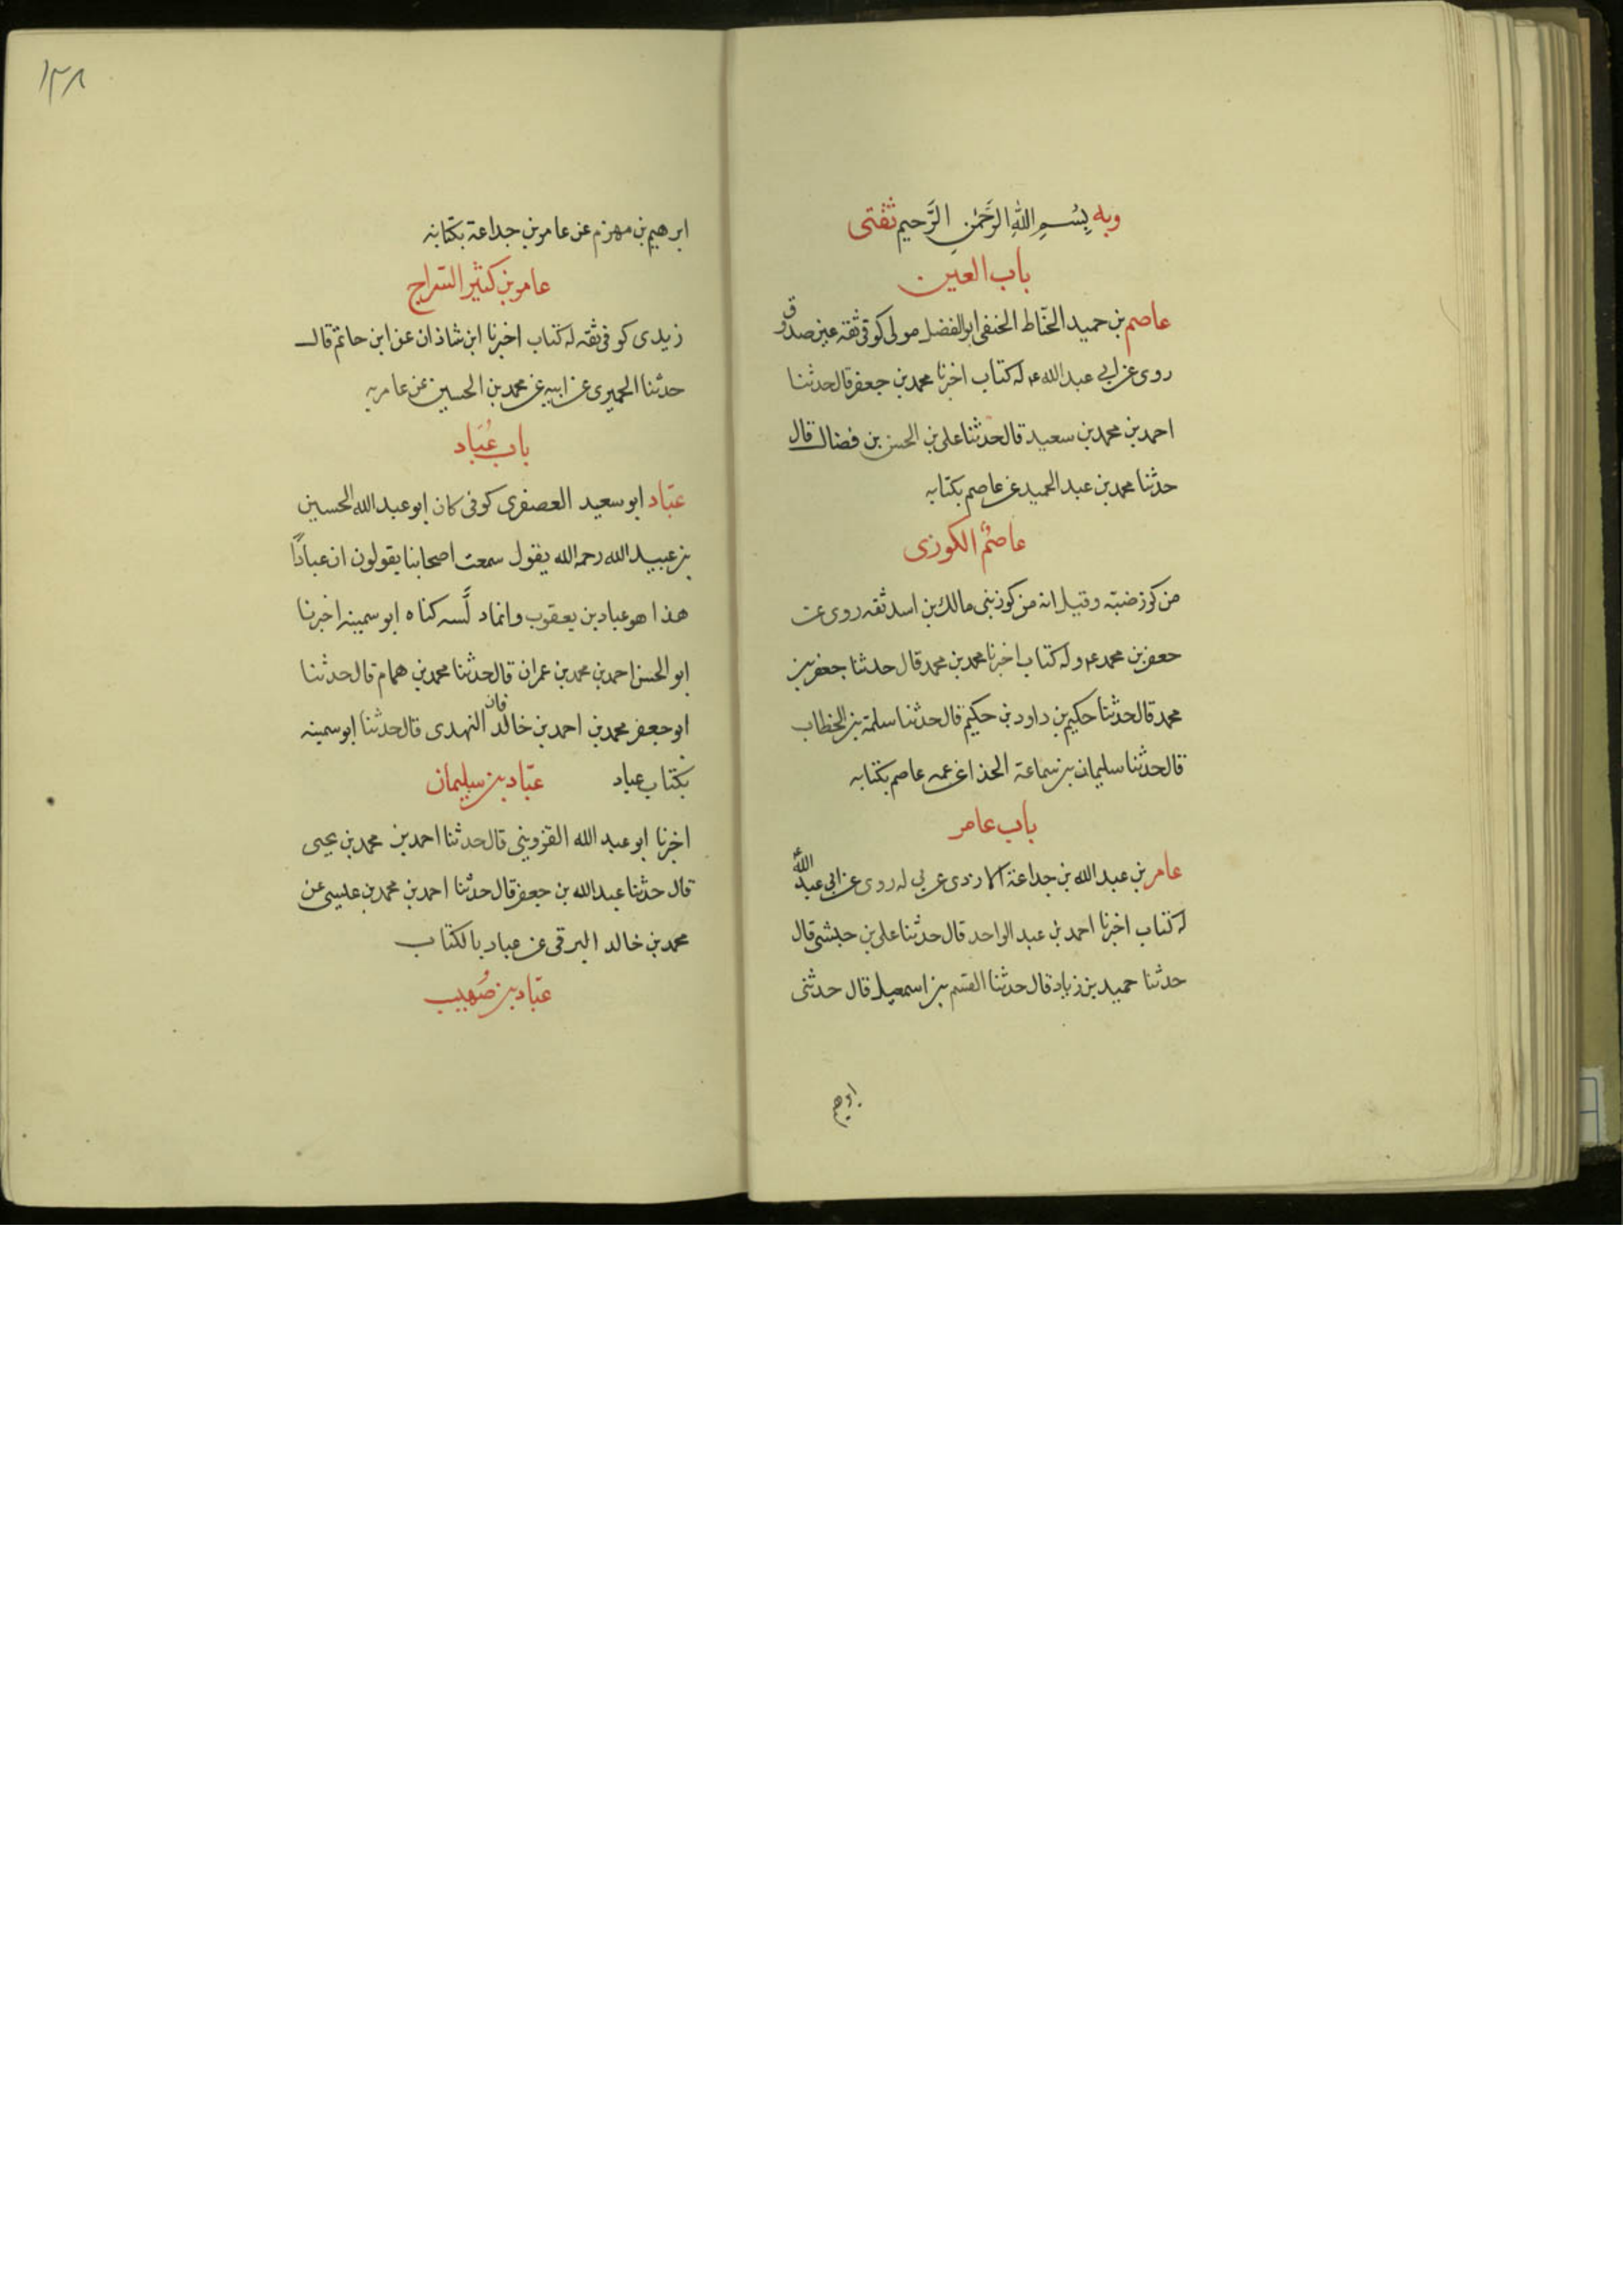 وبه بِسْمِ اللهِ الرَّحْمٰنِ الرَّحيمِ ثقتى
باب العين
عاصم بن حميد الحنّاط الحنفى ابوالفضل مولى كوفى ثقة عين صدوق
روى عن ابى عبدالله ع له كتاب اخبرنا محمد بن جعفر قال حدثنا
احمد بن محمد بن سعيد قال حدثنا على بن الحسن بن فضال قال
حدثنا محمد بن عبد الحميد عن عاصم بكتابه
عاصمُ الكوزى
من كوز ضبّه وقيل انه من كوز بنى مالك بن اسد ثقه روى عن
جعفر بن محمد ع وله كتاب اخبرنا محمد بن محمد قال حدثنا جعفر بن
محمد قال حدثنا حكيم بن داود بن حكيم قال حدثنا سلمة بن الخطاب
قال حدثنا سليمان بن سماعة الحذا عن عمه عاصم بكتابه
باب عامر
عامر بن عبد الله بن جداعة الازدى عربى له روى عن ابى عبد الله ع
له كتاب اخبرنا احمد بن عبد الواحد قال حدثنا على بن حبشى قال
حدثنا حميد بن زياد قال حدثنا القسم بن اسمعيل قال حدثنى
ابرهيم
١٣٨
ابرهيم بن مهزم عن عامر بن جداعة بكتابه
عامر بن كثير السراج
زيدى كوفى ثقه له كتاب اخبرنا ابن شاذان عن ابن حاتم قال
حدثنا الحميرى عن ابيه عن محمد بن الحسين عن عامر به
باب عُبَاد
عبّاد ابو سعيد العصفرى كوفى كان ابو عبد الله الحسين
بن عبيد الله رحمه الله يقول سمعت اصحابنا يقولون ان عبادًا
هذا هو عباد بن يعقوب وانما دلّسه كناه ابو سمينه اخبرنا
ابو الحسن احمد بن محمد بن عمران قال حدثنا محمد بن همام قال حدثنا
ابو جعفر محمد بن احمد بن خاقان خالد النهدى قال حدثنا ابو سمينه
بكتاب عباد عبّاد بن سليمان
اخبرنا ابو عبد الله القزوينى قال حدثنا احمد بن محمد بن يحيى
قال حدثنا عبد الله بن جعفر قال حدثنا احمد بن محمد بن عليسى عن
محمد بن خالد البرقى عن عباد بالكتاب
عبّاد بن صُهيب